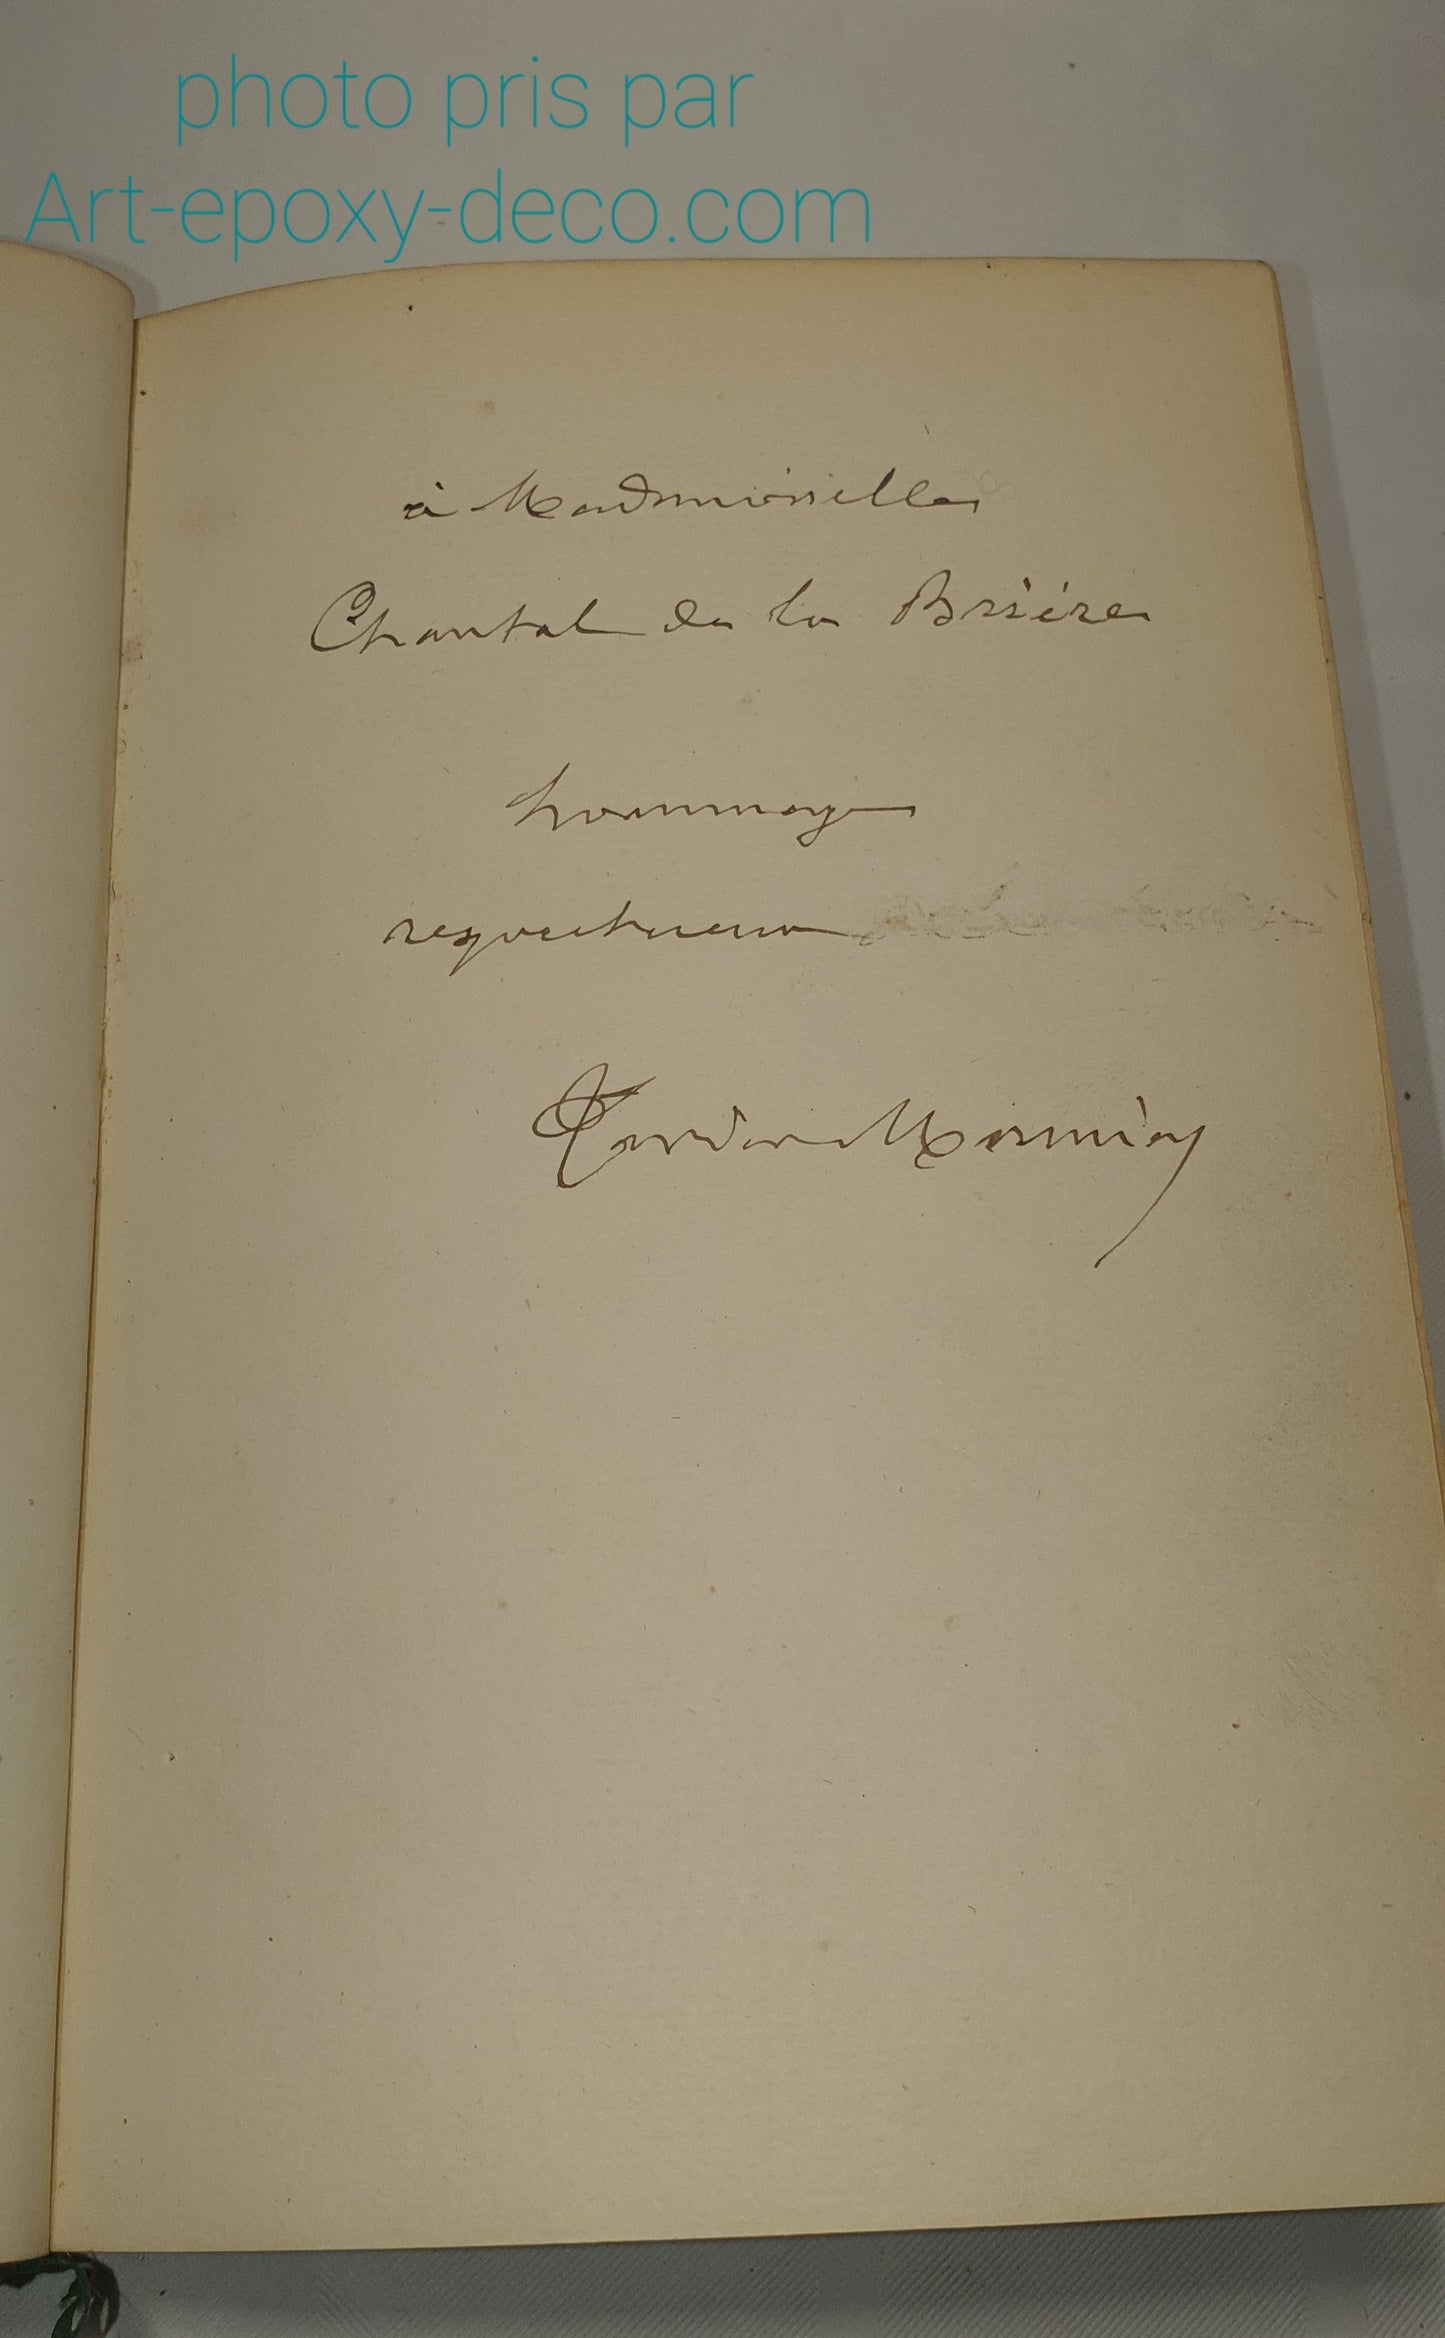 photo pris par
Art-epoxy-deco.com
à Mademoiselle
Chantal de la Brière
hommage
respectueux